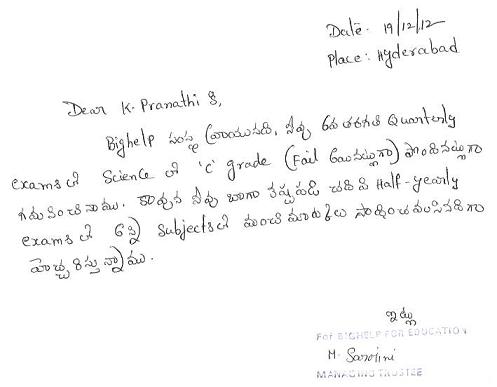 Date: 19/12/12
Place: Hyderabad
Dear K. Pranathi కి,
Bighelp సంస్థ వ్రాయునది, నీవు 6వ తరగతి Quarterly
exams లో Science లో 'C' grade (Fail అయినట్లుగా) పొందినట్లుగా
గమనించినాము. కావున నీవు బాగా కష్టపడి చదివి Half-yearly
exams లో అన్ని Subjects లో మంచి మార్కులు సాధించవలసినదిగా
హెచ్చరిస్తున్నాము.
ఇట్లు
For BIGHELP FOR EDUCATION
M. Sarojini
MANAGING TRUSTEE